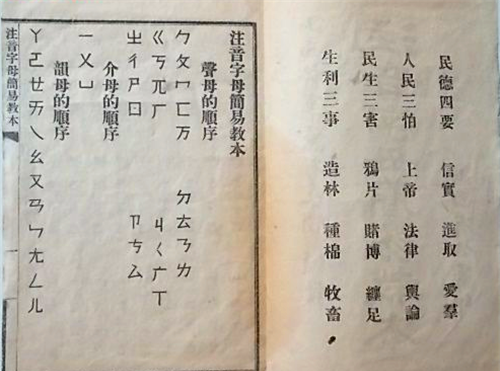 民德四要 信實 進取 愛羣
人民三怕 上帝 法律 輿論
民生三害 鴉片 賭博 纏足
生利三事 造林 種棉 牧畜
注音字母簡易教本
聲母的順序
ㄅㄆㄇㄈㄪ ㄉㄊㄋㄌ
ㄍㄎㄫㄏ ㄐㄑㄬㄒ
ㄓㄔㄕㄖ ㄗㄘㄙ
介母的順序
ㄧㄨㄩ
韻母的順序
ㄚㄛㄝㄞㄟㄠㄡㄢㄣㄤㄥㄦ
注音字母簡易教本